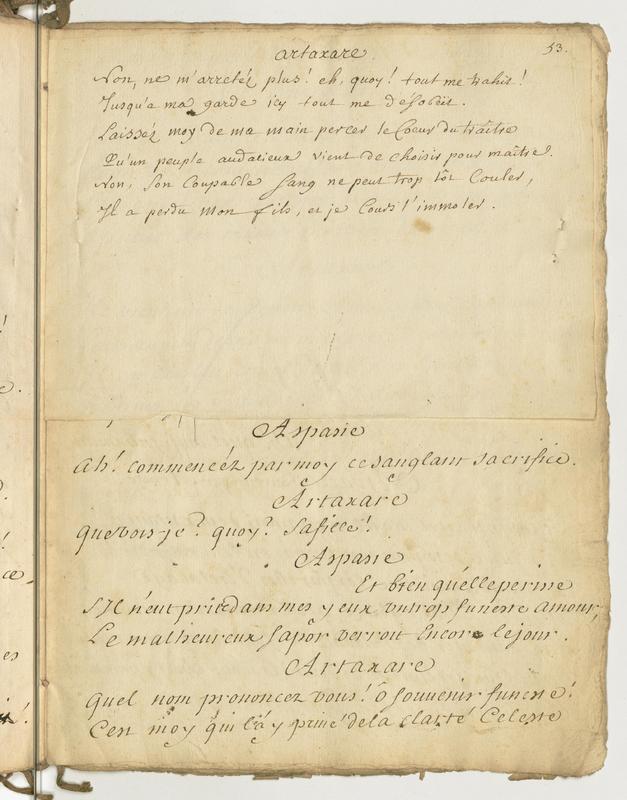 53.
artaxare
Non, ne m'arretéz plus! eh, quoy! tout me trahit!
Jusqu'a ma garde icy tout me désobéit.
Laisséz moy de ma main percer le Coeur du traitre
Qu'un peuple audacieux vient de choisir pour maître.
Non, son Coupable Sang ne peut trop tôt Couler,
Il a perdu mon fils, et je Cours l'immoler.
Aspasie
Ah! commencéz par moy ce sanglant sacrifice.
Artaxare
que vois-je? quoy? sa fille!
Aspasie
Et bien qu'elle perisse
S'Il n'eut pris dans mes yeux un trop funeste amour,
Le malheureux Sapor verroit Encore le jour.
Artaxare
quel nom prononcez vous! ô souvenir funeste!
C'est moy qui l'a y privé de la clarté Celeste